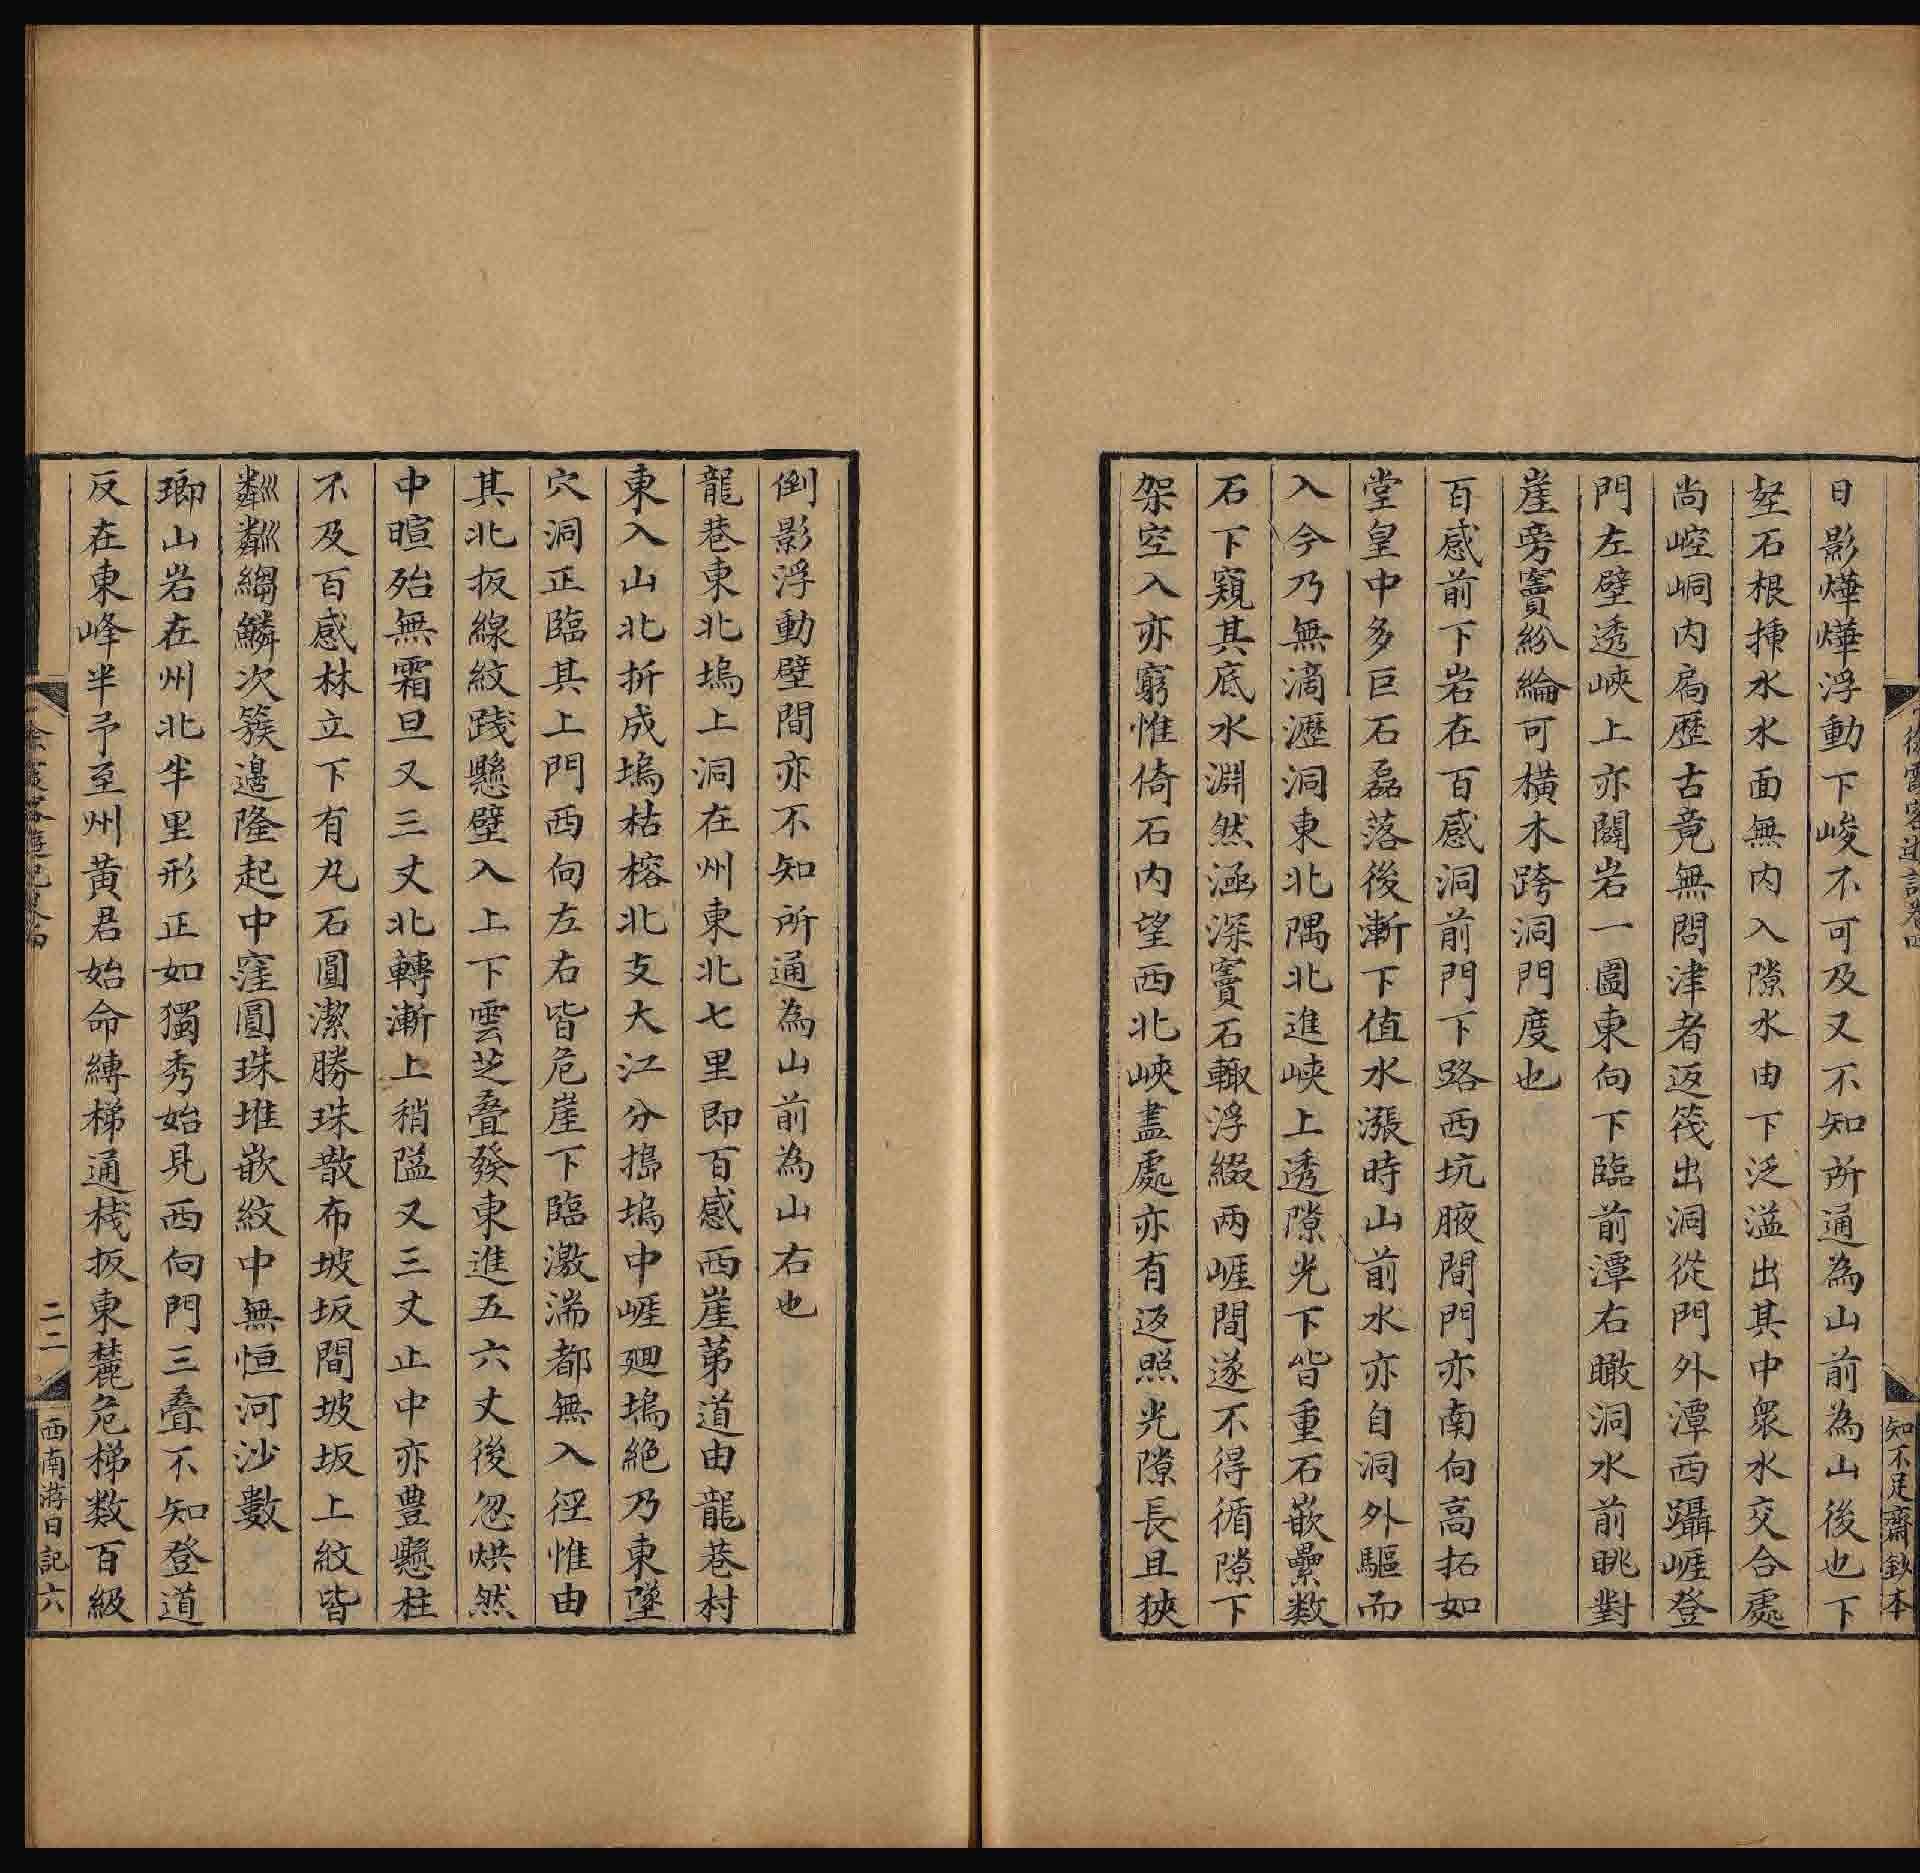 日影燁燁浮動下峻不可及又不知所通為山前為山後也下
坙石根揷水水面無内入隙水由下泛溢出其中衆水交合處
尚崆峒内扄歷古竟無問津者返筏出洞從門外潭西躡崕登
門左壁透峽上亦闢岩一圖東向下臨前潭右瞰洞水前眺對
崖旁竇紛綸可橫木跨洞門度也
百感前下岩在百感洞前門下路西坑腋間門亦南向高拓如
堂皇中多巨石磊落後漸下值水漲時山前水亦自洞外驅而
入今乃無滴瀝洞東北隅北進峽上透隙光下皆重石嵌纍数
石下窺其底水淵然涵深竇石輙浮綴两崕間遂不得循隙下
架空入亦窮惟倚石内望西北峽盡處亦有返照光隙長且狹
知不足齋鈔本
倒影浮動壁間亦不知所通為山前為山右也
龍巷東北塢上洞在州東北七里即百感西崖苐道由龍巷村
東入山北折成塢枯榕北支大江分搗塢中崕廻塢絶乃東墜
穴洞正臨其上門西向左右皆危崖下臨激湍都無入徑惟由
其北扳線紋踐懸壁入上下雲芝叠發東進五六丈後忽烘然
中暄殆無霜旦又三丈北轉漸上稍隘又三丈止中亦豊懸柱
不及百感林立下有丸石圓潔勝珠散布坡坂間坡坂上紋皆
粼粼縐鱗次簇邊隆起中窪圓珠堆嵌紋中無恒河沙數
瑯山岩在州北半里形正如獨秀始見西向門三叠不知登道
反在東峰半予至州黄君始命縛梯通棧扳東麓危梯数百級
二二
西南游日記六